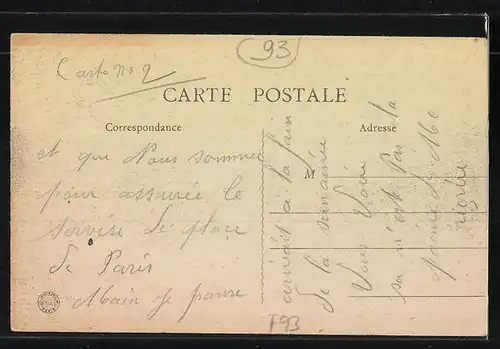 93
Carte No 2
CARTE POSTALE
Correspondance
Adresse
M
et que Nous sommes
pour assurée le
servise de place
de Paris
Main je pense
arrivait à la fain
de la semaine
Vous Voire
sa n'est pas la
F93